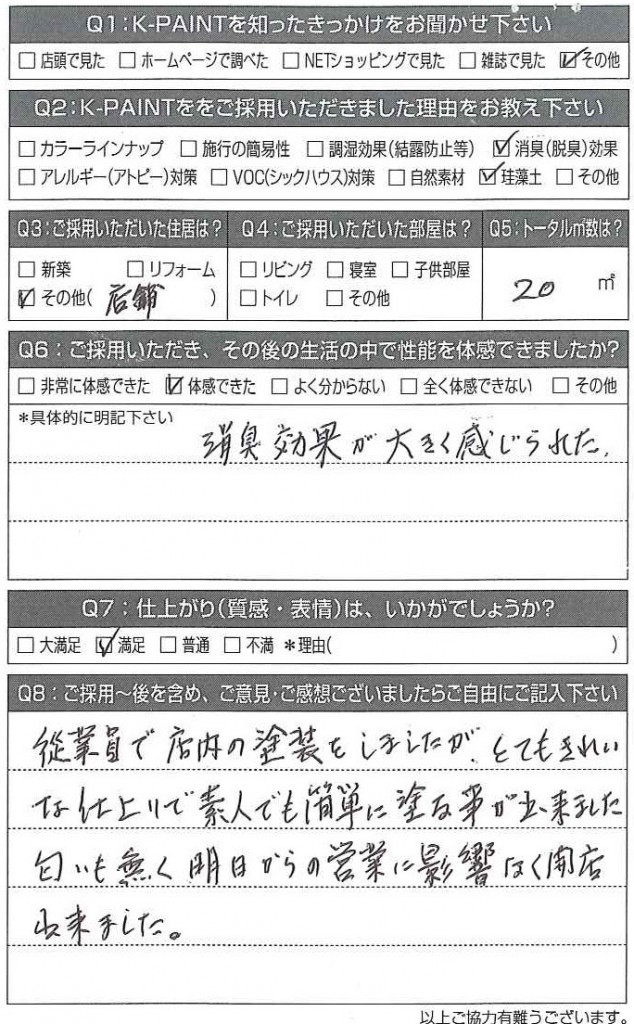 Q1:K-PAINTを知ったきっかけをお聞かせ下さい
□店頭で見た □ホームページで調べた □NETショッピングで見た □雑誌で見た ☑その他
Q2:K-PAINTををご採用いただきました理由をお教え下さい
□カラーラインナップ □施行の簡易性 □調湿効果(結露防止等) ☑消臭(脱臭)効果
□アレルギー(アトピー)対策 □VOC(シックハウス)対策 □自然素材 ☑珪藻土 □その他
Q3:ご採用いただいた住居は? Q4:ご採用いただいた部屋は? Q5:トータル㎡数は?
□新築 □リフォーム □リビング □寝室 □子供部屋 20 ㎡
☑その他(店舗) □トイレ □その他
Q6:ご採用いただき、その後の生活の中で性能を体感できましたか?
□非常に体感できた ☑体感できた □よく分からない □全く体感できない □その他
*具体的に明記下さい
消臭効果が大きく感じられた.
Q7:仕上がり(質感・表情)は、いかがでしょうか?
□大満足 ☑満足 □普通 □不満 *理由( )
Q8:ご採用~後を含め、ご意見・ご感想ございましたらご自由にご記入下さい
従業員で店内の塗装をしましたが、とてもきれい
な仕上りで素人でも簡単に塗る事が出来ました
匂いも無く明日からの営業に影響なく開店
出来ました。
以上ご協力有難うございます。